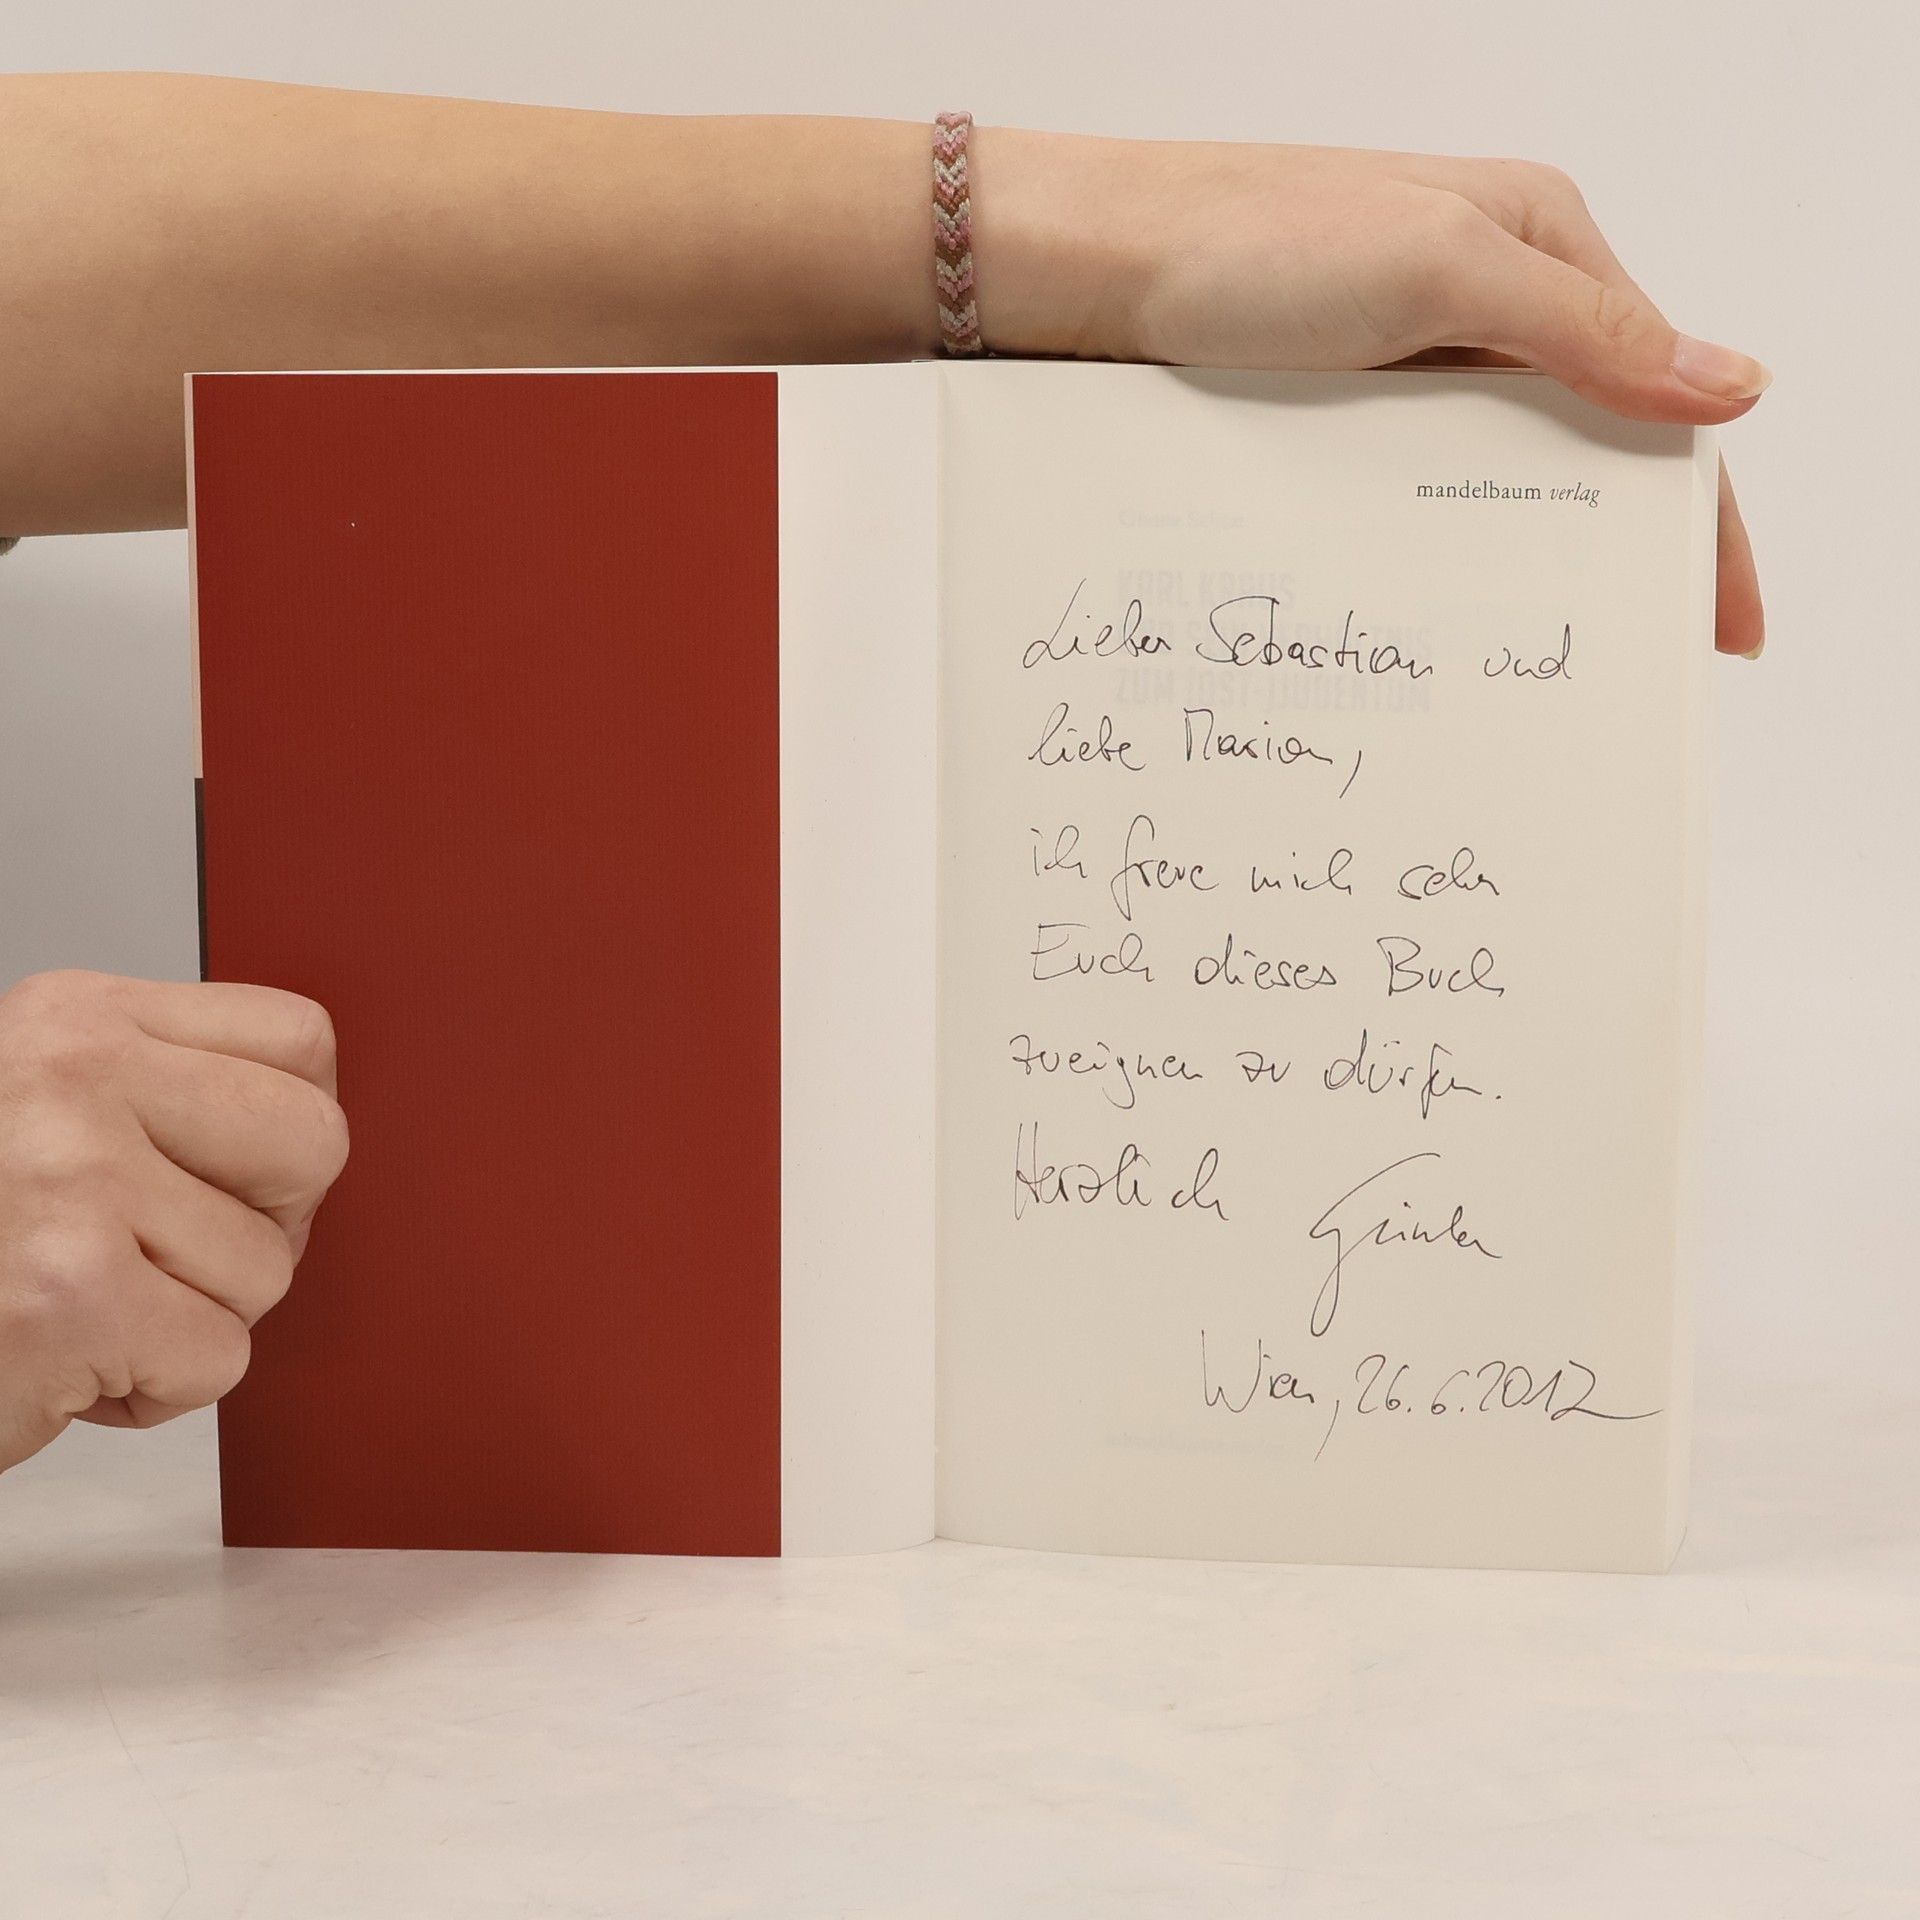 mandelbaum verlag
KARL KRAUS
ZUM (OST-)JUDENTUM
Lieber Sebastian und
liebe Marion,
ich freue mich sehr
Euch dieses Buch
zueignen zu dürfen.
Herzlich Günter
Wien, 26.6.2012